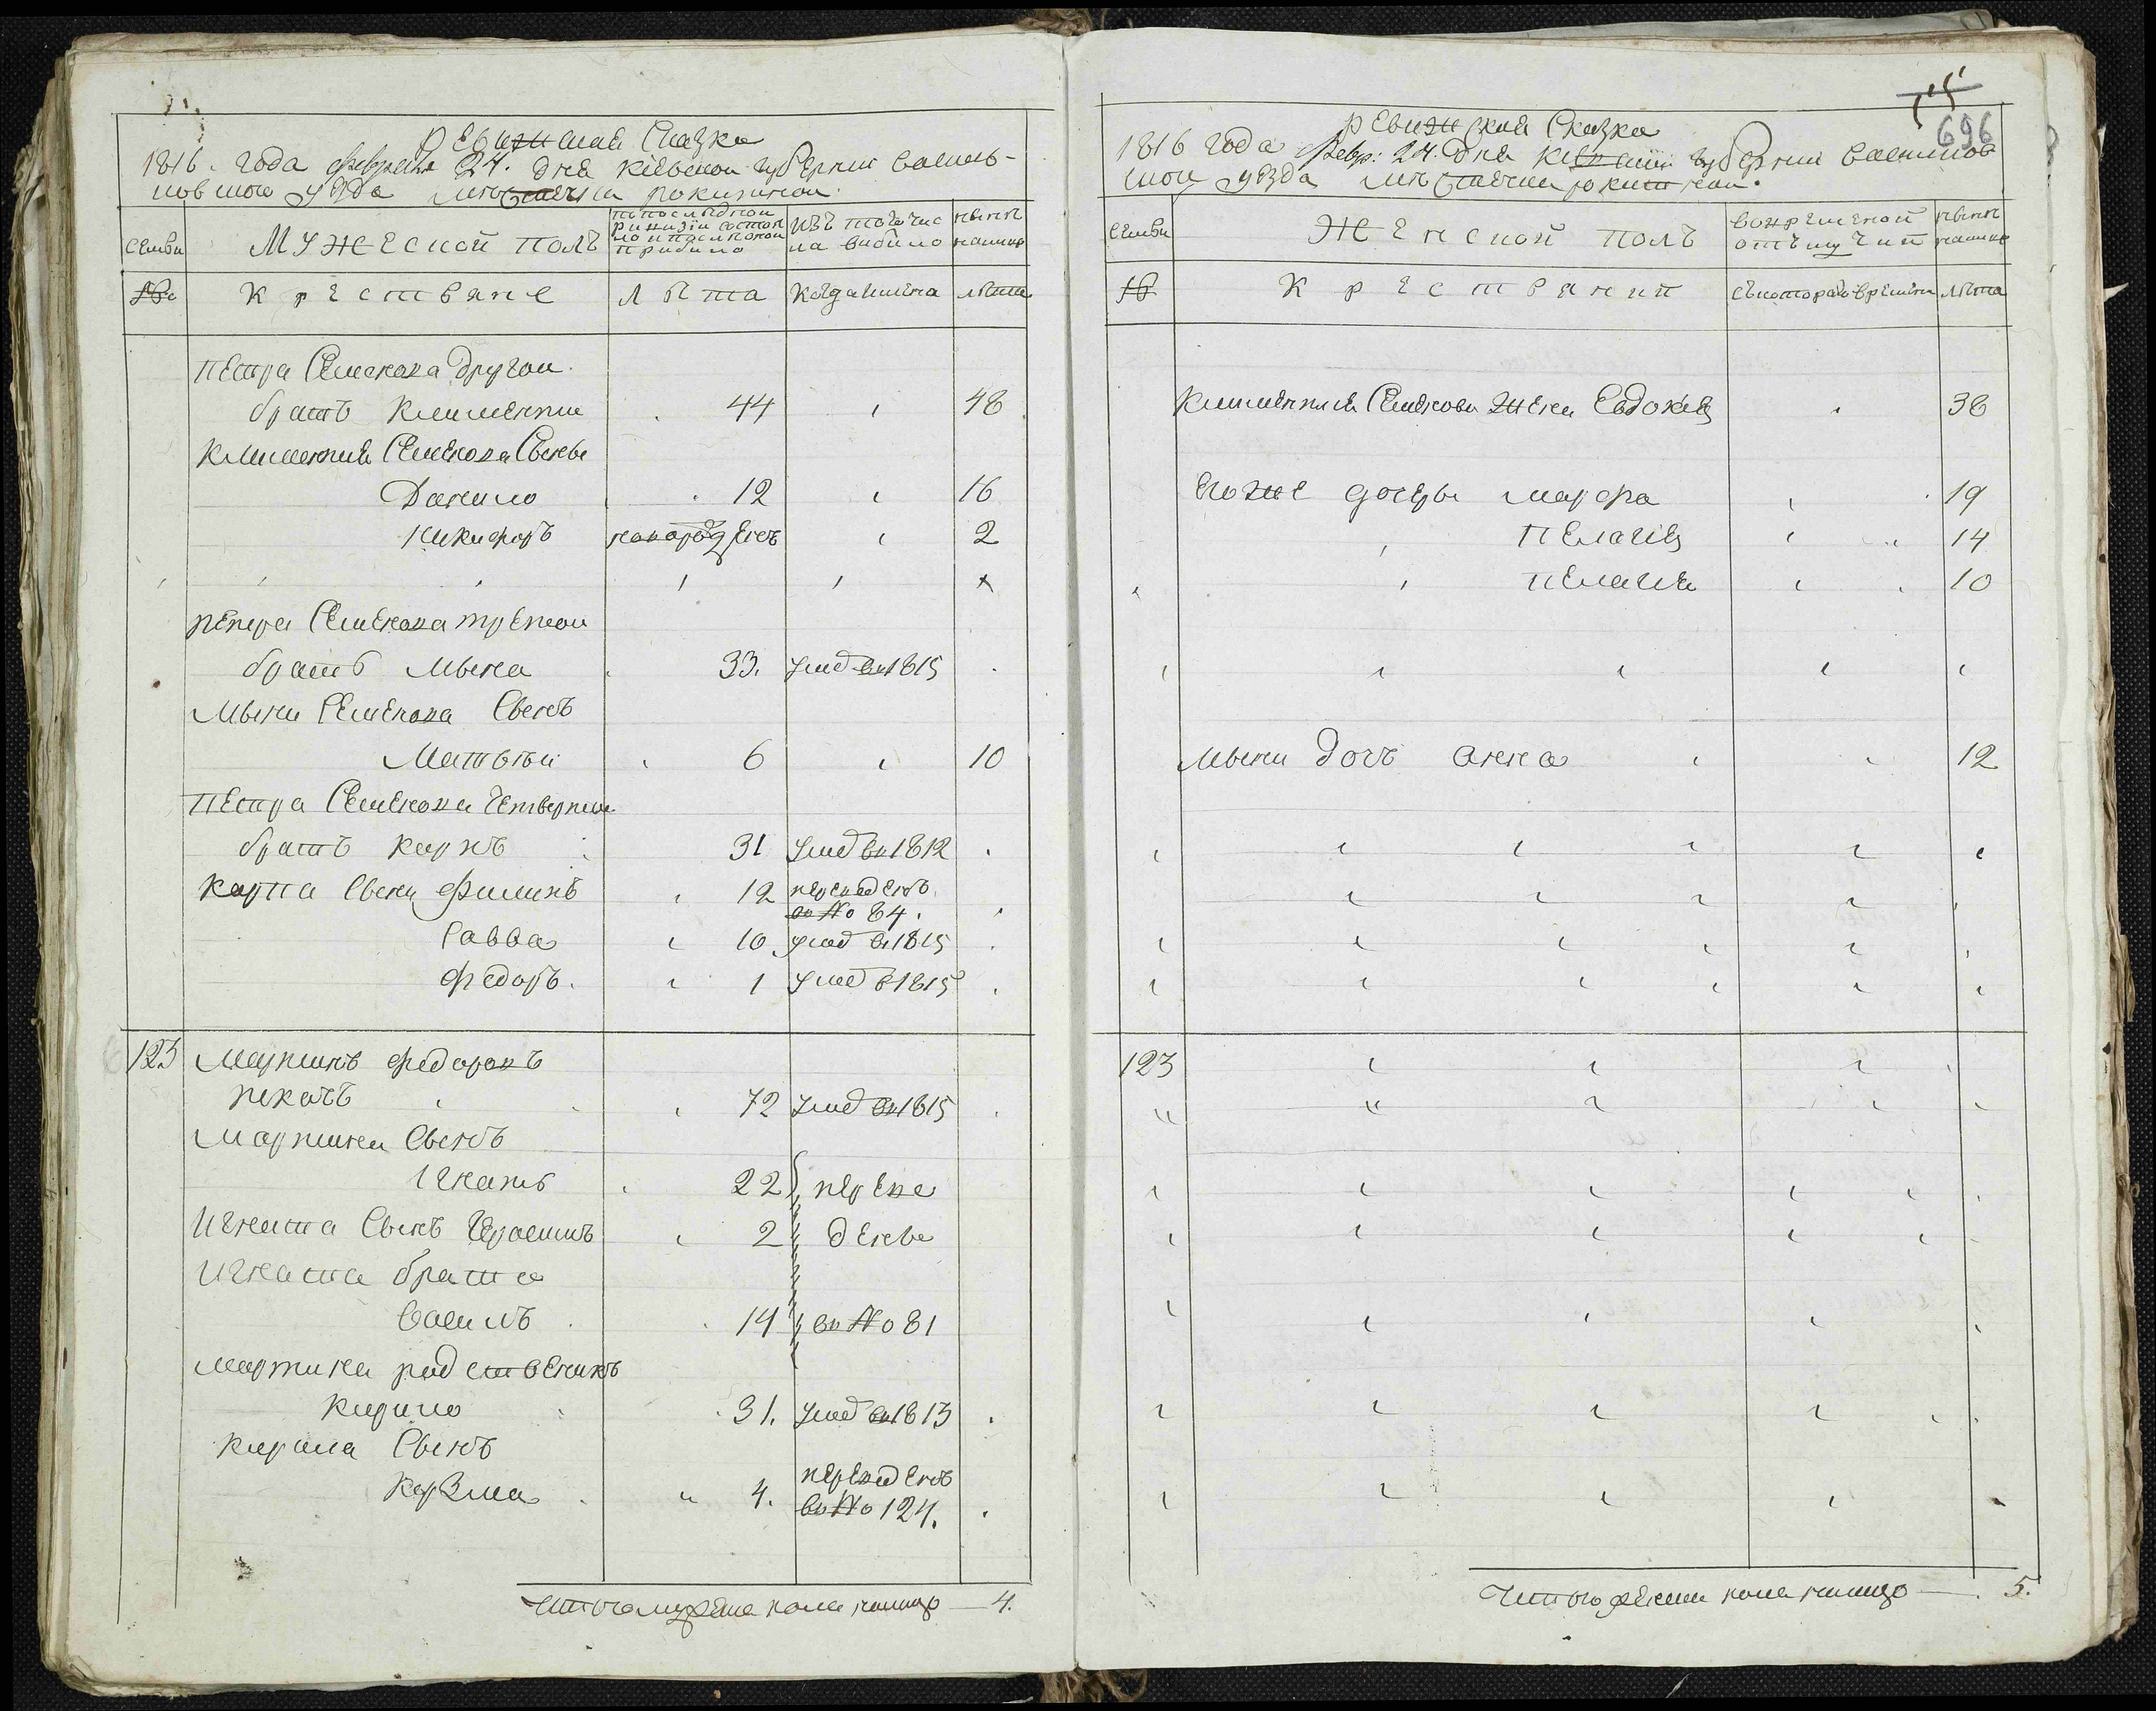 Ревижская Сказка
1816. года февраля 24. дня Кіевской губерніи василь-
ковской уезда местечка рокитной.
семьи
Мужеской полъ
по последной ревизіи состояло и после оной прибыло
изъ того числа выбыло
ныне на лицо
№
Крестьяне
Лета
Когда имено
лета
Петра Семенова другой
братъ Климентий 44 48
Климентия Семенова Сыны
Данило 12 16
Никифоръ новорожденъ 2
Петра Семенова третой
братъ Мына 33. умер в 1815
Мыни Семенова Сынъ
Матвей 6 10
Петра Семенова Четвертий
братъ Карпъ 31 умер в 1812
Карпа Сыны Филипъ 12 переведенъ
в № 84.
Савва 10 умер в 1815
Федоръ. 1 умер в 1815
123 Мартинъ Федоровъ
72 умер в 1815
Мартина Сынъ
Игнатъ 22 переве
Игната Сынъ Герасимъ 2 дены
Игната брата
Василь 14 в № 81
Мартина родственикъ
Кирило 31. умер в 1813
Кирила Сынъ
Козма 4. переведенъ
в № 124.
Итого мужеска пола налицо — 4.
696
Ревижская Сказка
1816 года Февр: 24. дня Киевской губернии Васильков
ской уезда местечка рокитной.
семьи
Женской полъ
во временной отълучки
ныне налицо
№
Крестьянки
съ которого времени
лета
Климентия Семенова жена Евдокія 38
Егоже дочеры Марфа 19
Пелагія 14
Пелагия 10
Мыни дочь Анна 12
123
Итого женска пола налицо — 5.